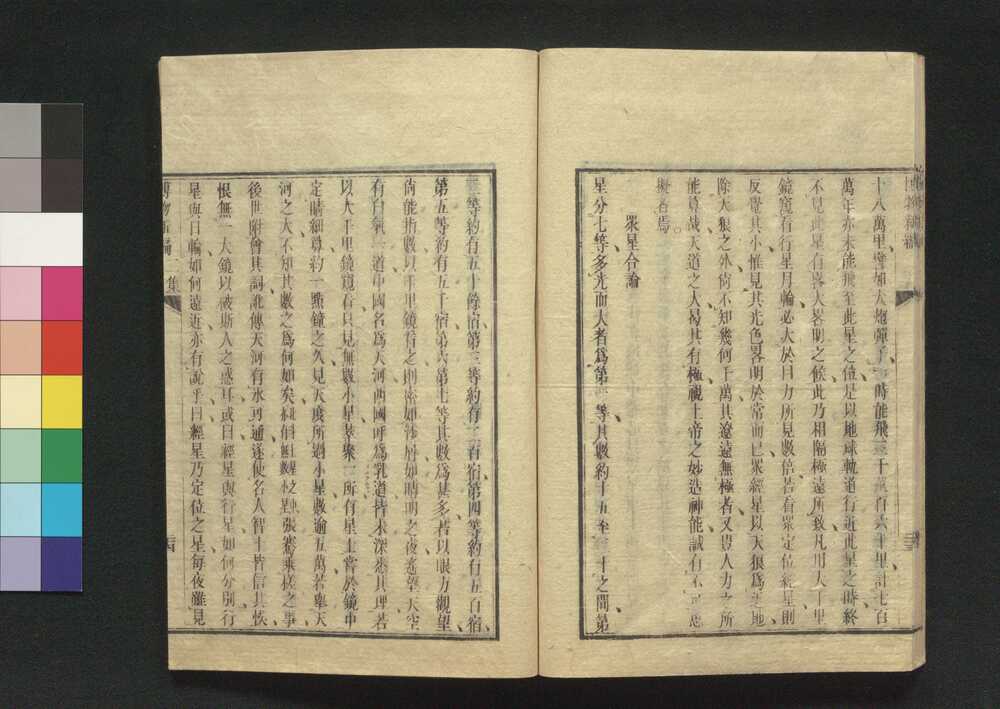 十八萬里譬如大炮彈子一時能飛三千六百六十里計七百
萬年亦未能飛至此星之位是以地球軌道行近此星之時終
不見此星有畧大畧明之候此乃相隔極遠所致凡用大千里
鏡窺看行星月輪必大於目力所見數倍若看眾定位經星則
反覺其小惟見其光色畧明於常而已眾經星以天狼爲近地
除天狼之外尙不知幾何千萬其遼遠無極者又豈人力之所
能算哉天道之人揭其有極視上帝之妙造神能誠有不可思
擬者焉
眾星合論
星分七等多光而大者爲第一等其數約十五至二十之間第
二等約有五十餘宿第三等約有二百宿第四等約有五百宿
第五等約有五千宿第六第七等其數爲甚多若以眼力觀望
尙能指數以千里鏡看之則密如沙屑如晴明之夜遙望天空
有白氣一道中國名爲天河西國呼爲乳道皆未深悉其理若
以大千里鏡窺看只見無數小星萃聚一所有星士嘗於鏡中
定睛細算約一點鐘之久見天度所過小星數逾五萬若舉天
河之大不知其數之爲何如矣 張騫乘槎之事
後世附會其詞訛傳天河有水可通遂使名人智士皆信其恢
恨無一大鏡以破斯人之惑耳或曰經星與行星如何分別行
星與日輪如何遠近亦有說乎曰經星乃定位之星每夜雖見
博物新編二集